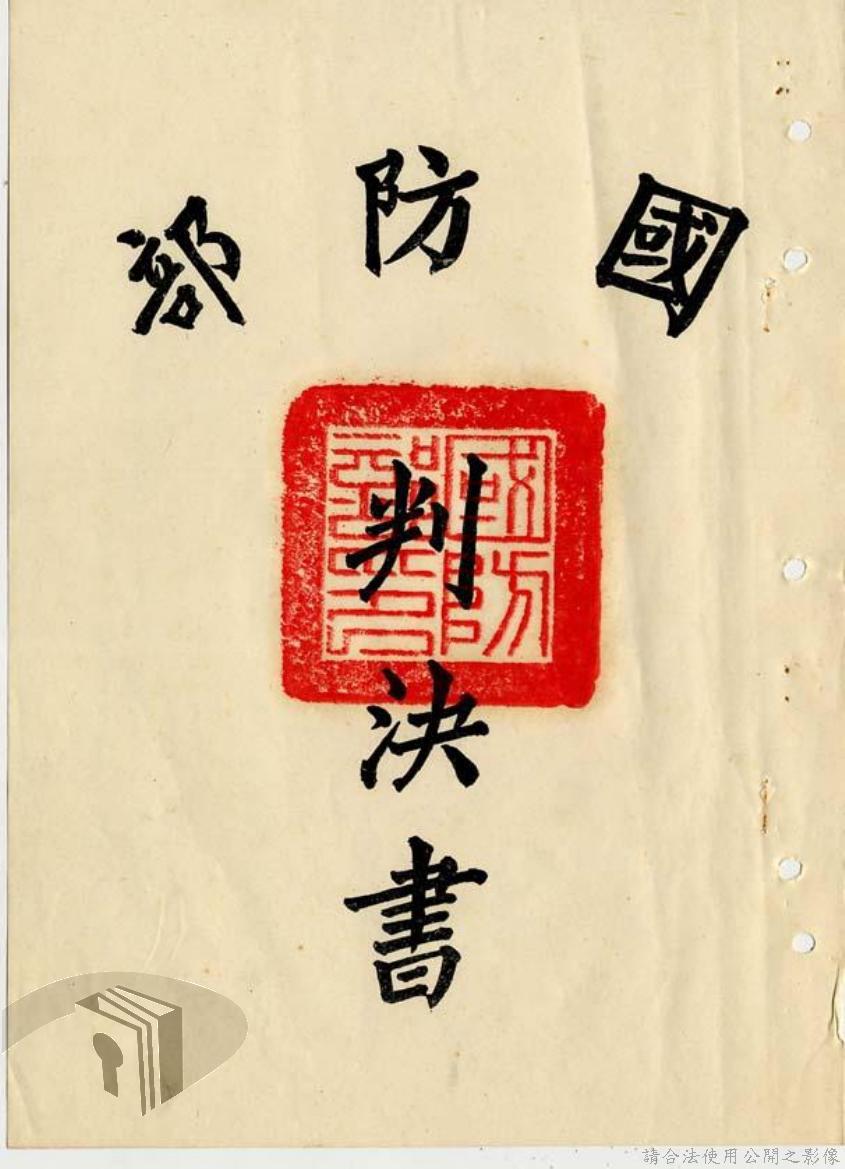 國防部
國防部印
判決書
請合法使用公開之影像